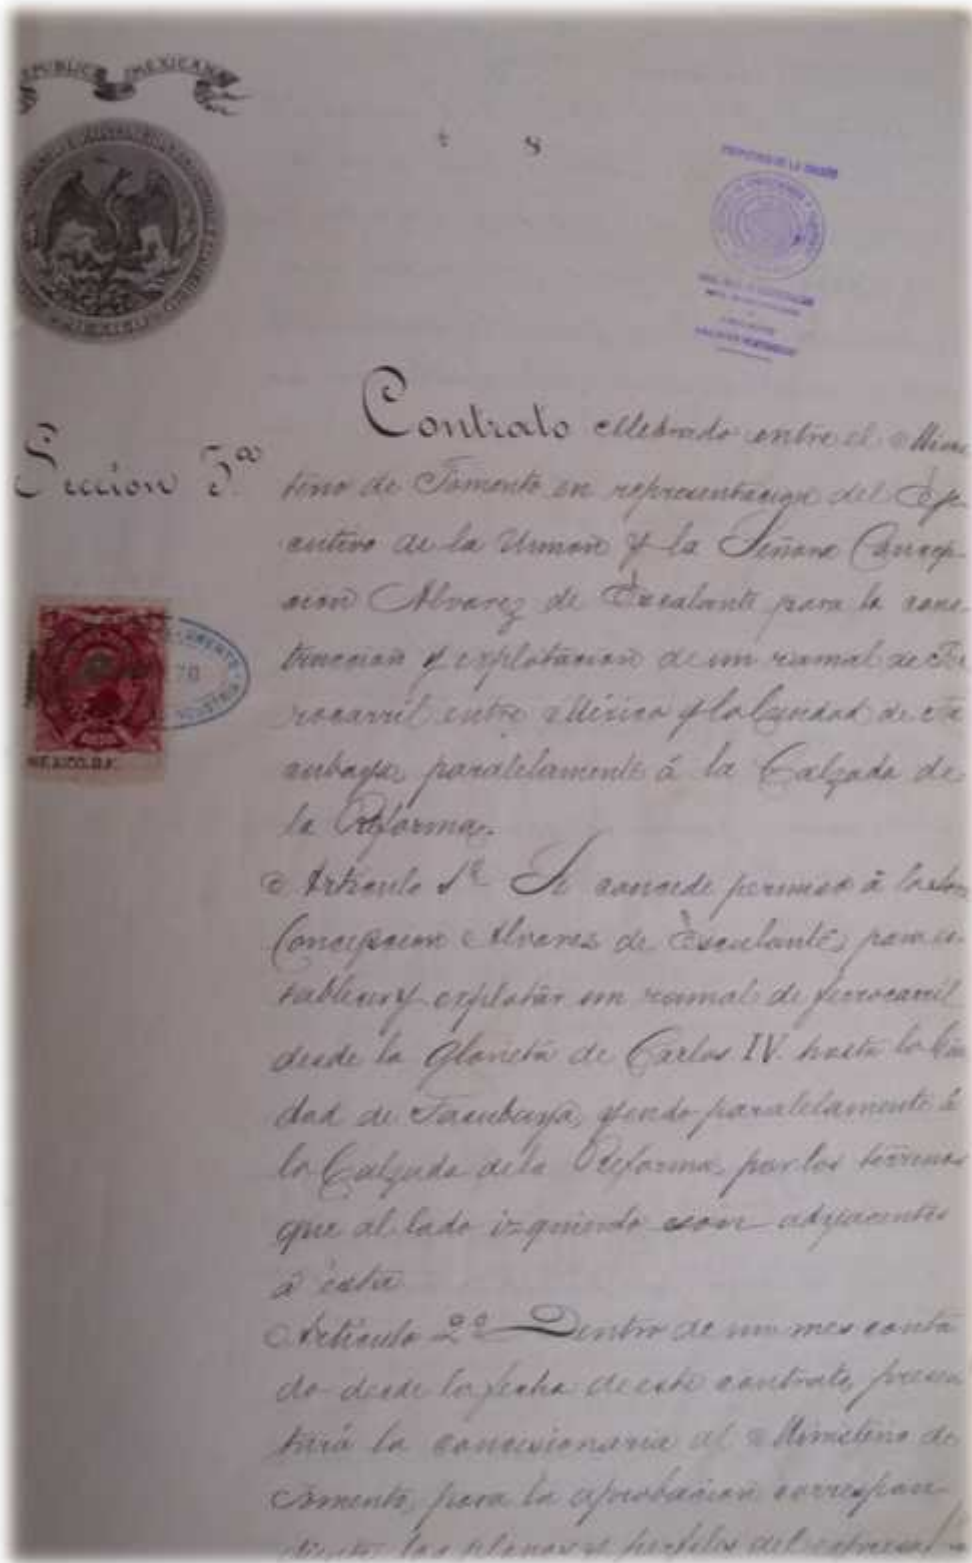 REPUBLICA MEXICANA
8
Contrato celebrado entre el Minis
Seccion 3ª
terio de Fomento en representacion del Eje
cutivo de la Union y la Señora Concep-
cion Alvarez de Escalante para la cons-
truccion y explotacion de un ramal de Fer
rocarril entre México y la Ciudad de Ta
cubaya, paralelamente á la Calzada de
la Reforma.
MEXICO. D.F.
Articulo 1º Se concede permiso á la
Concepcion Alvarez de Escalante, para es-
tablecer y explotar un ramal de ferrocarril
desde la Glorieta de Carlos IV. hasta la Ciu
dad de Tacubaya, yendo paralelamente á
la Calzada de la Reforma, por los terrenos
que al lado izquierdo son adyacentes
á ésta
Articulo 2º Dentro de un mes conta
do desde la fecha de este contrato, presen
tará la concesionaria al Ministerio de
Fomento, para la aprobacion correspon-
diente los planos y perfiles del